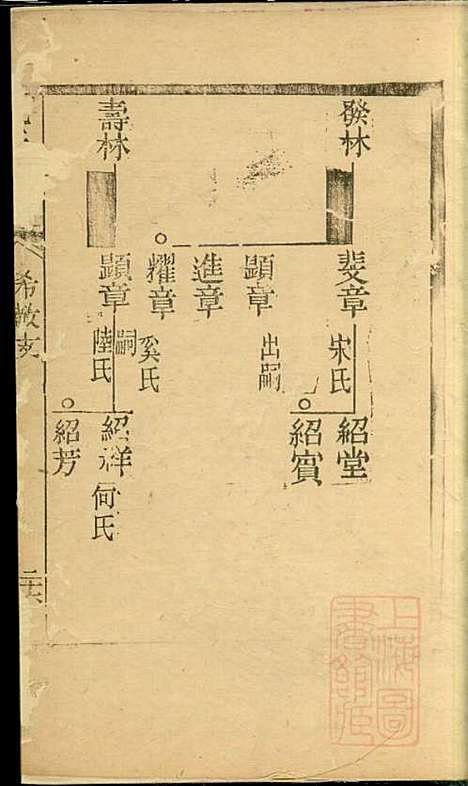 發林
斐章
宋氏
紹堂
紹賓
顕章
出嗣
進章
耀章
奚氏
壽林
顕章
嗣
陸氏
紹祥
何氏
紹芳
希敏支
二十六
上海圖
書館藏